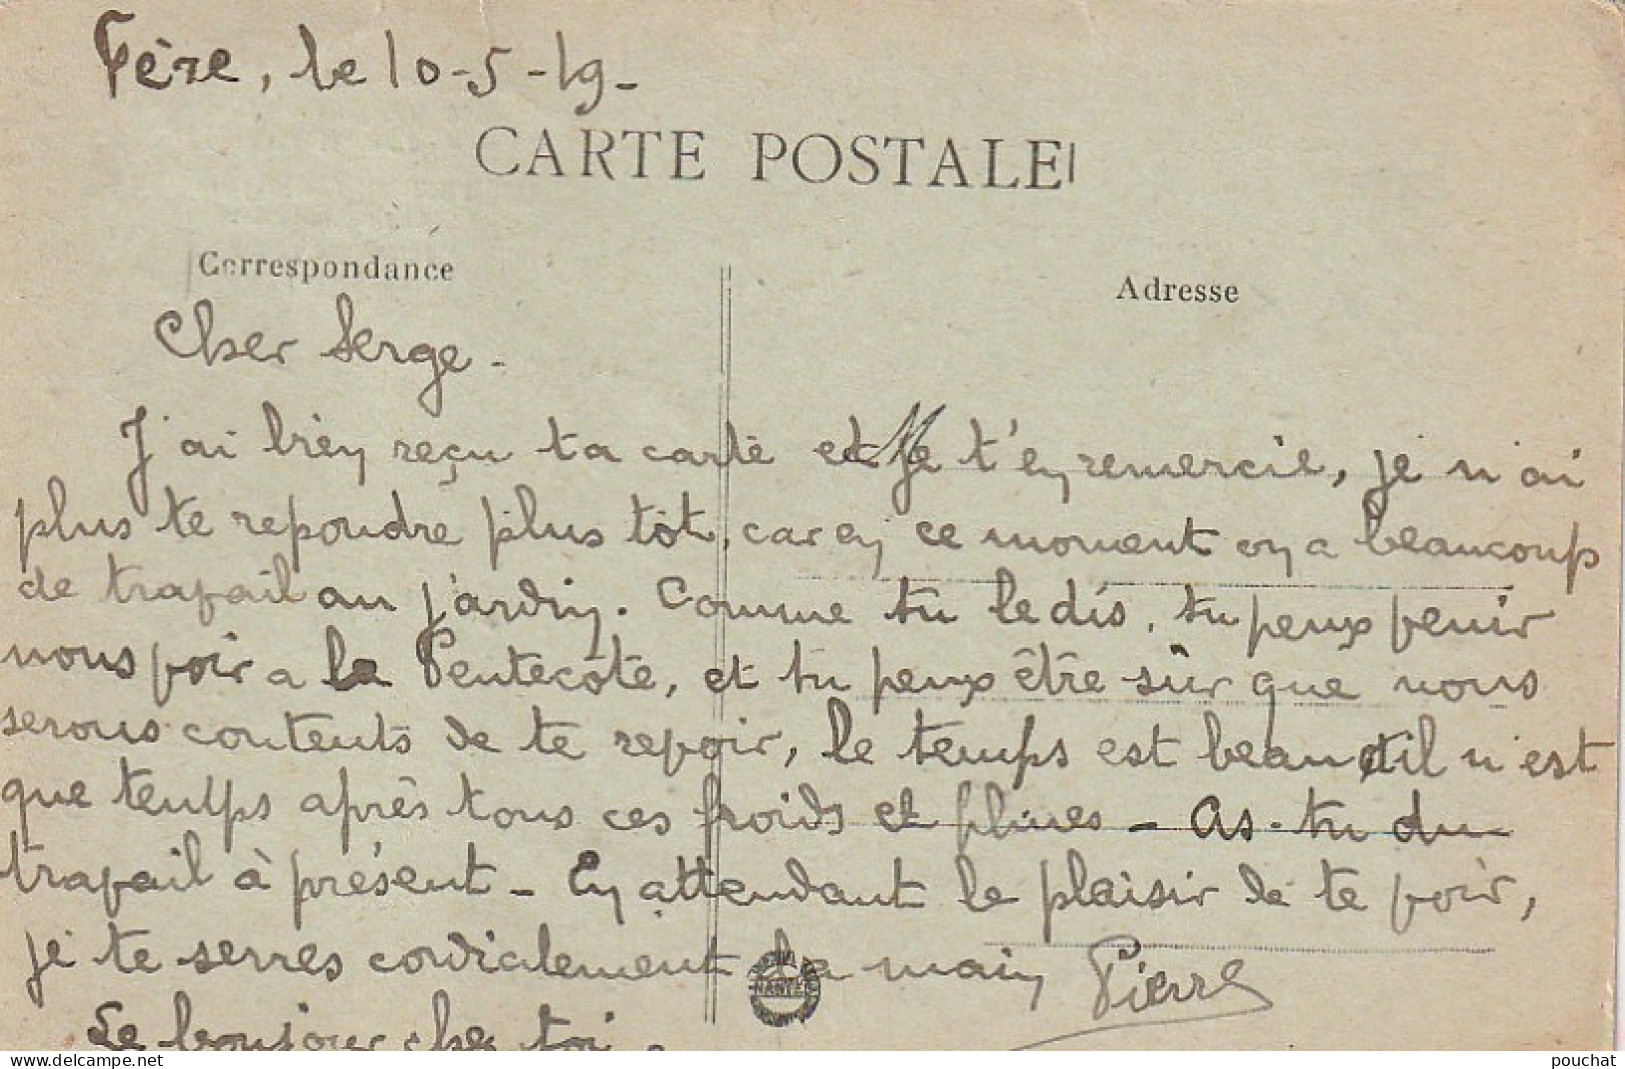 Fère, le 10-5-19-
CARTE POSTALE
Correspondance
Adresse
Cher Serge -
J'ai bien reçu ta carte et je t'en remercie, je n'ai
plus te repondre plus tôt, car en ce moment on a beaucoup
de travail au jardin. Comme tu le dis, tu peux venir
nous voir a la Pentecôte, et tu peux être sûr que nous
serons contents de te revoir, le temps est beau et il n'est
que temps après tous ces froids et pluies - As-tu du
travail à présent - En attendant le plaisir de te voir,
je te serres cordialement la main Pierre
NANTES
Le bonjour chez toi.
pouchat